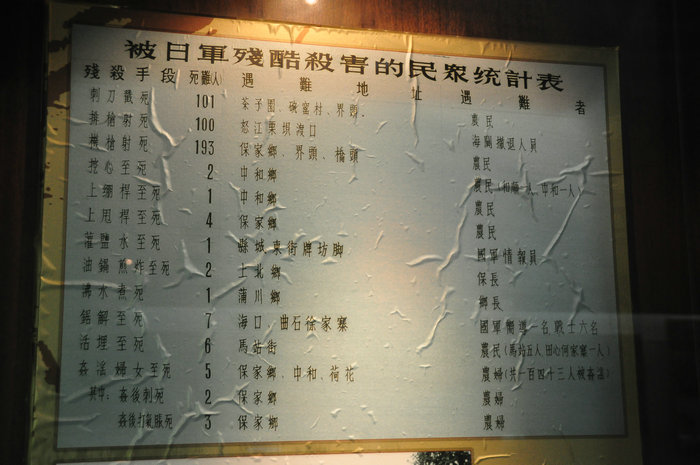 被日軍殘酷殺害的民眾统計表
殘殺手段 死難人 遇難地址 遇難者
刺刀戳死 101 茶子園、碗窑村、界頭 農民
排槍射死 100 怒江栗垻渡口 海關撤退人員
機槍射死 193 保家鄉、界頭、橋頭 農民
挖心至死 2 中和鄉 農民(和順一人、中和一人)
上绷桿至死 1 中和鄉 農民
上甩桿至死 4 保家鄉 農民
灌鹽水至死 1 縣城東街牌坊脚 國軍情報員
油鍋煎炸至死 2 上北鄉 保長
沸水煮死 1 蒲川鄉 鄉長
鋸解至死 7 海口、曲石徐家寨 國軍嚮導一名戰士六名
活埋至死 6 馬站街 農民(馬站五人田心何家寨一人)
姦淫婦女至死 5 保家鄉、中和、荷花 農婦(共一百四十三人被姦淫)
其中:姦後刺死 2 保家鄉 農婦
姦後打氣脹死 3 保家鄉 農婦